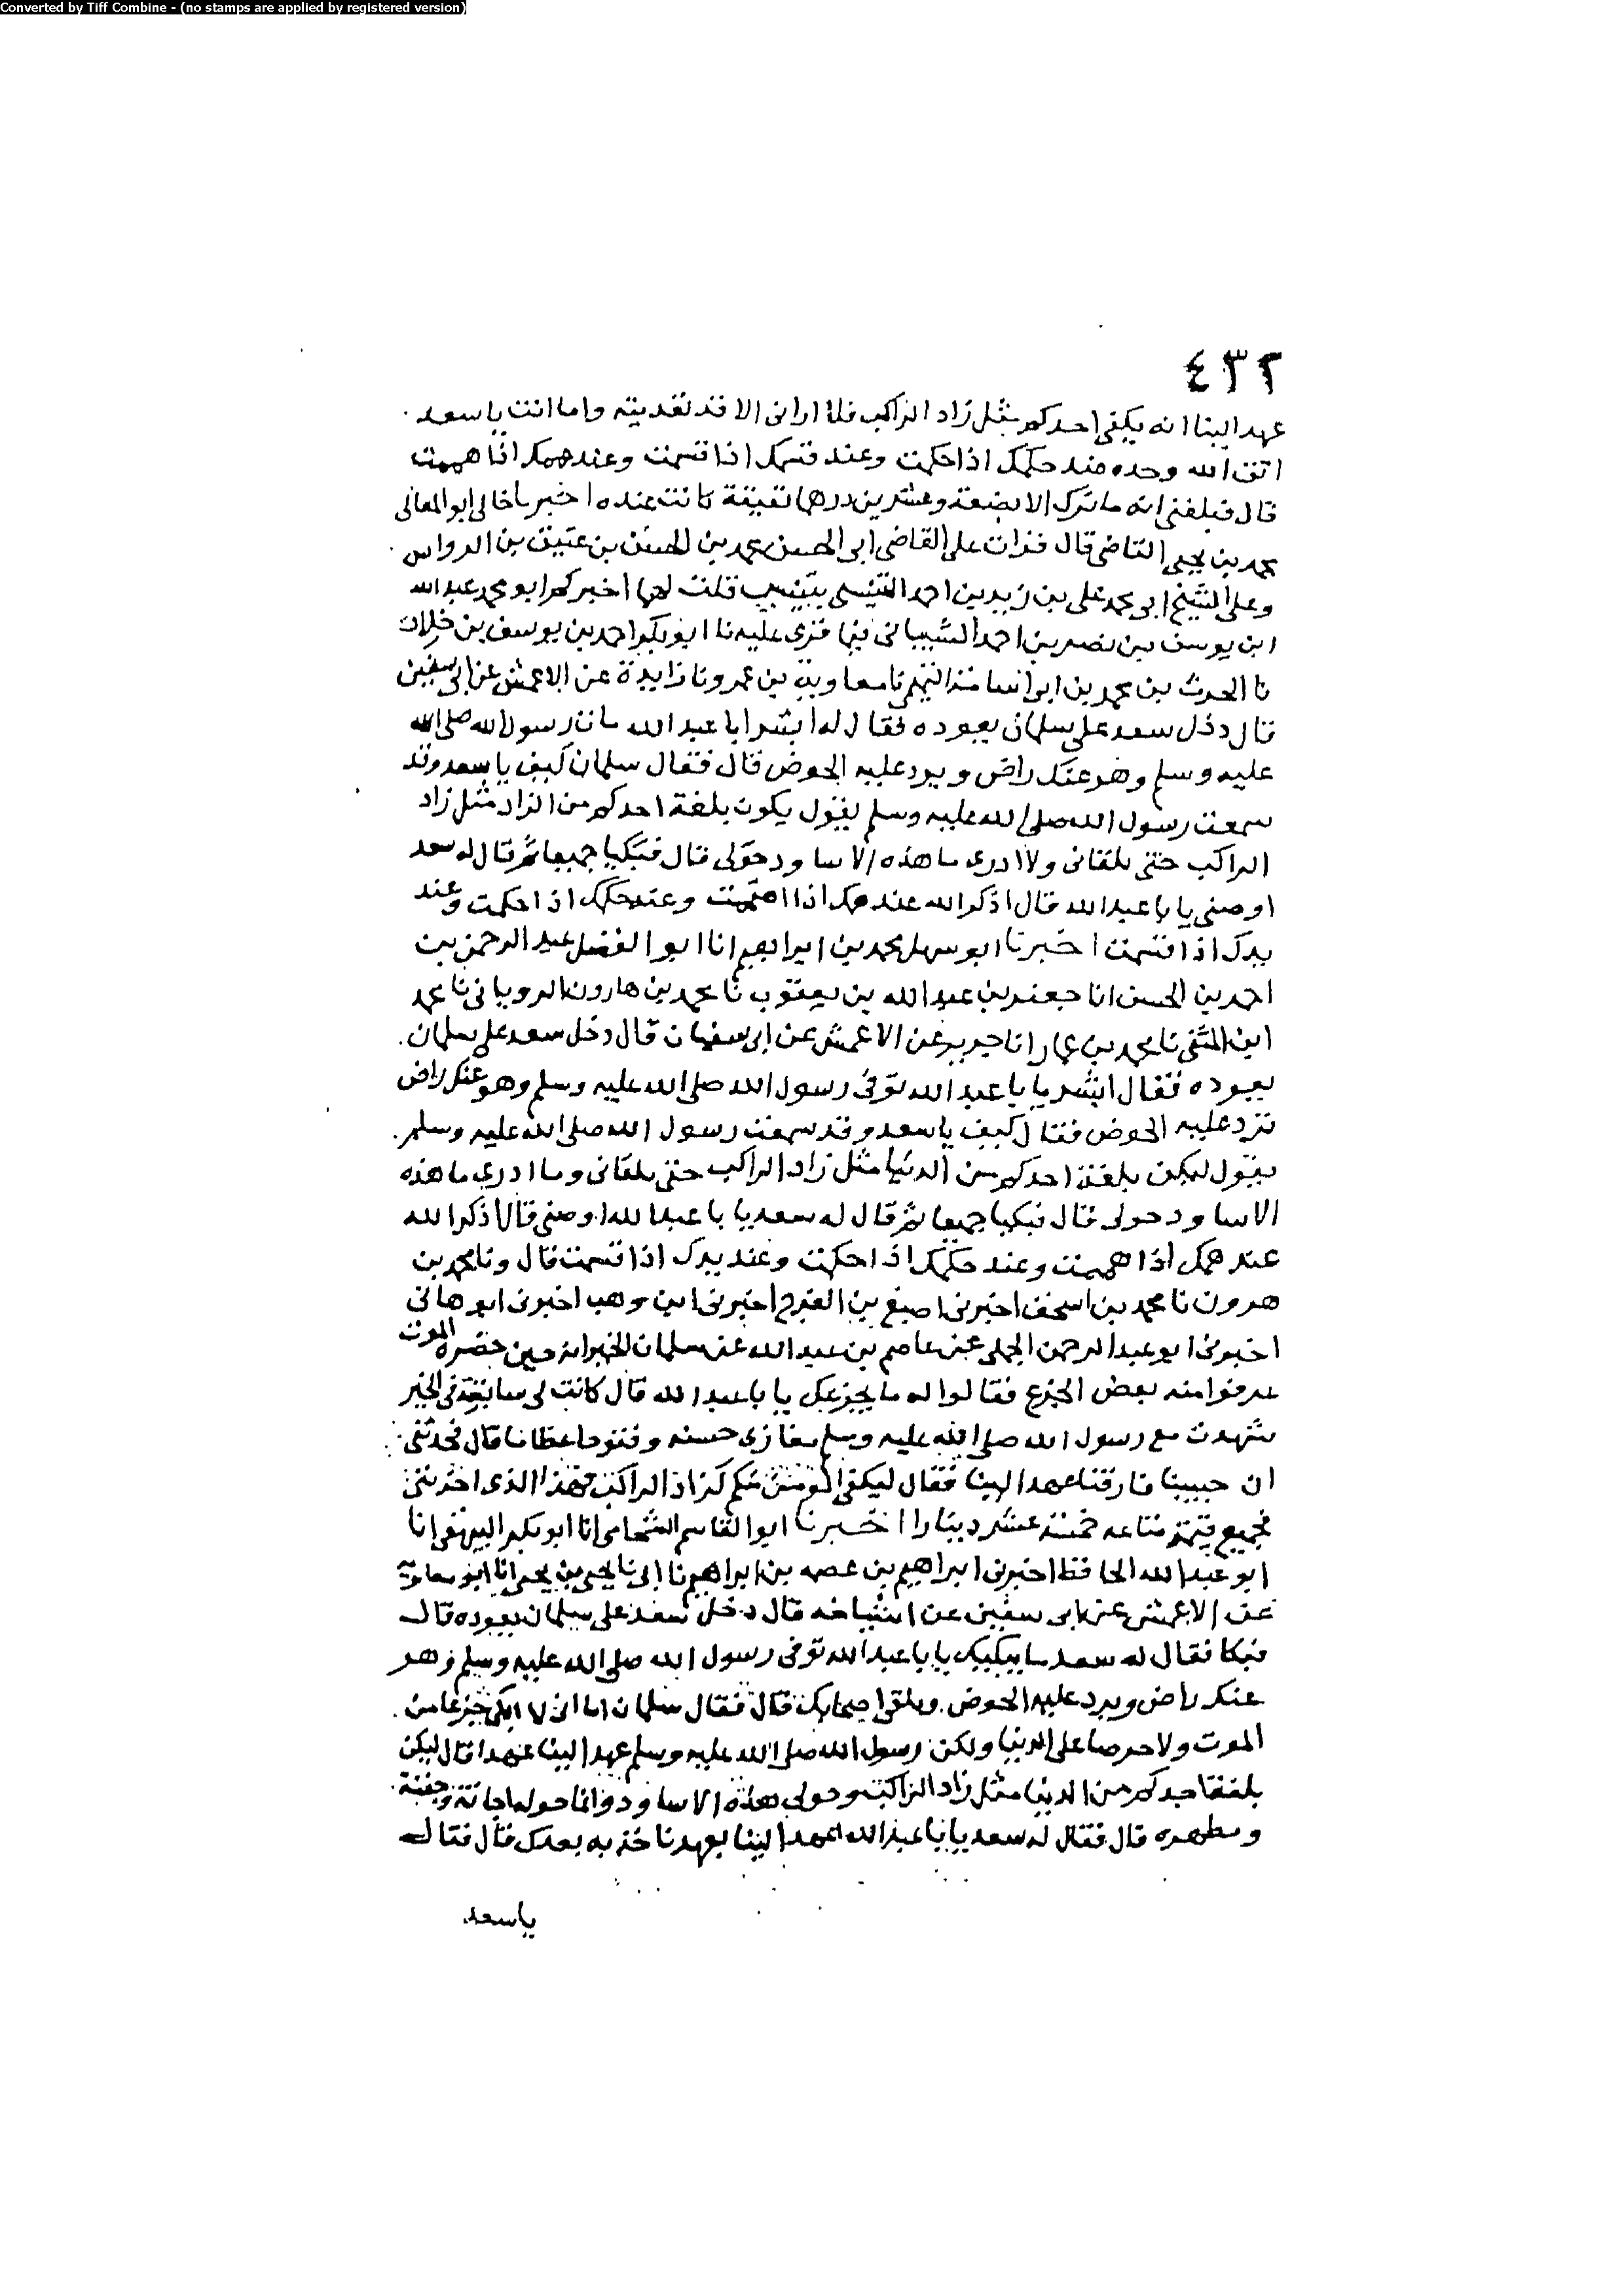 Converted by Tiff Combine - (no stamps are applied by registered version)
٤٣٢
عهد الينا انه يكفي احدكم مثل زاد الراكب فلا اراني الا قد تعديته واما انت يا سعد
اتق الله وحده عند حكمك اذا حكمت وعند قسمك اذا قسمت وعند همك اذا هممت
قال فبلغني انه ما ترك الا بضعة وعشرين درهما نفيقة كانت عنده اخبرنا خالي ابو المعالي
محمد بن يحيى القاضي قال قرات على القاضي ابي الحسن محمد بن الحسن بن عتيق بن الرواس
وعلى الشيخ ابي محمد علي بن زيد بن احمد التنيسي بتنيس قلت لهما اخبركم ابو محمد عبد الله
ابن يوسف بن نصر بن احمد الشيباني فيما قرى عليه نا ابو بكر احمد بن يوسف بن خلاد
نا الحرث بن محمد بن ابي اسامة التيمي نا معاوية بن عمرو نا زايدة عن الاعمش عن ابي سفين
قال دخل سعد على سلمان يعوده فقال له ابشر ابا عبد الله مات رسول الله صلى الله
عليه وسلم وهو عنك راض ويرد عليه الحوض قال فقال سلمان كيف يا سعد وقد
سمعت رسول الله صلى الله عليه وسلم يقول يكون بلغة احدكم من الزاد مثل زاد
الراكب حتى يلقاني ولا ادري ما هذه الاساود حولي قال فبكيا جميعا ثم قال له سعد
اوصني يا با عبد الله قال اذكر الله عند همك اذا اهتممت وعند حكمك اذا حكمت وعند
يدك اذا قسمت اخبرنا ابو سهل محمد بن ابراهيم انا ابو الفضل عبد الرحمن بن
احمد بن الحسن انا جعفر بن عبد الله بن يعقوب نا محمد بن هارون الروياني نا محمد
ابن المثنى نا محمد بن عمار انا جرير عن الاعمش عن ابي سفيان قال دخل سعد على سلمان
يعوده فقال ابشر يا با عبد الله توفي رسول الله صلى الله عليه وسلم وهو عنك راض
ترد عليه الحوض فقال كيف يا سعد وقد سمعت رسول الله صلى الله عليه وسلم
يقول ليكن بلغة احدكم من الدنيا مثل زاد الراكب حتى يلقاني وما ادري ما هذه
الاساود حولي قال فبكيا جميعا ثم قال له سعد يا با عبد الله اوصني قال اذكر الله
عند همك اذا هممت وعند حكمك اذا حكمت وعند يدك اذا قسمت قال ونا محمد بن
هرون نا محمد بن اسحق اخبرني اصبغ بن الفرج اخبرني ابن وهب اخبرني ابو هاني
اخبرني ابو عبد الرحمن الحبلي عن عامر بن عبد الله عن سلمان الخير انه حين حضره الموت
عرفوا منه بعض الجزع فقالوا له ما يجزعك يا با عبد الله قال كانت لي سابقة في الخير
شهدت مع رسول الله صلى الله عليه وسلم مغازي حسنه وفتوحا عظاما قال يحزنني
ان حبيبنا فارقنا عهد الينا فقال ليكفي المومن منكم كزاد الراكب فهذا الذي احزنني
فجميع قيمة متاعه خمسة عشر دينارا اخبرنا ابو القاسم الشحامي انا ابو بكر البيهقي انا
ابو عبد الله الحافظ اخبرني ابراهيم بن عصمه بن ابراهيم نا ابي نا يحيى بن يحيى انا ابو معاوية
عن الاعمش عن ابي سفين عن اشياخه قال دخل سعد على سلمان يعوده قال
فبكا فقال له سعد ما يبكيك يا با عبد الله توفي رسول الله صلى الله عليه وسلم وهو
عنك راض ويرد عليه الحوض وتلقى اصحابك قال فقال سلمان اما اني لا ابكي جزعا من
الموت ولا حرصا على الدنيا ولكن رسول الله صلى الله عليه وسلم عهد الينا عهدا قال ليكن
بلغة احدكم من الدنيا مثل زاد الراكب وحولي هذه الاساود وانما حوله اجانة وجفنة
ومطهره قال فقال له سعد يا با عبد الله اعهد الينا بعهد ناخذ به بعدك قال فقال
يا سعد